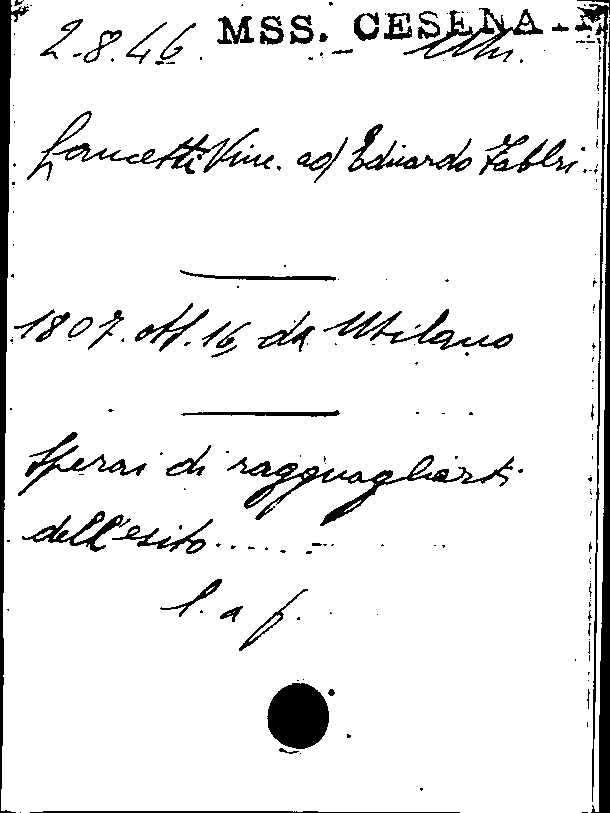 MSS. CESENA -
2.8.46.
Lancetti Vinc. ad Eduardo Fabbri
1807. ott. 16 da Milano
Sperai di ragguagliarti
dell'esito.....
l. a f.